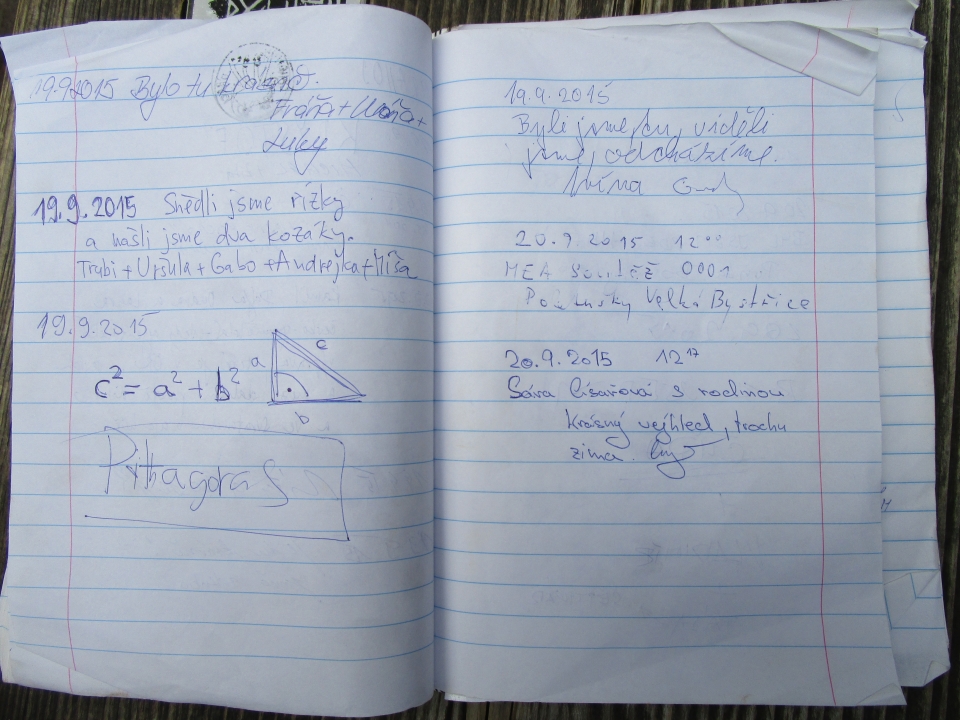 19.9.2015 Bylo tu krásně.
Fráňa + Váňa +
Luky
19.9.2015 Snědli jsme řízky
a našli jsme dva kozáky.
Trabi + Uršula + Gabo + Andrejka + Míša
19.9.2015
c² = a² + b²
a
c
b
Pithagoras
19.9.2015
Byli jsme tu, viděli
jsme, odcházíme.
20.9.2015 12⁰⁰
MEA 0001
Velká Bystřice
20.9.2015 12¹⁷
Sára Císařová s rodinou
krásný vejhled, trochu
zima.